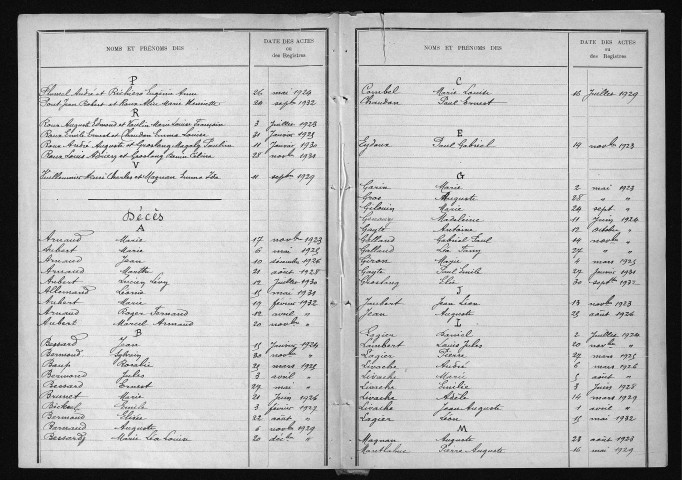 NOMS ET PRÉNOMS DES
DATE DES ACTES
ou
des Registres
P
André et Eugénie Anne 26 mai 1924
Pont Jean Robert et Roux Marie Henriette 24 septbre 1932
R
Roux Auguste Edmond et Marie Louise Françoise 3 Juillet 1923
Roux Emile Ernest et Chaudon Emma Louise 31 Janvier 1925
Roux André Auguste et Grosleng Magaly Pauline 11 Janvier 1930
Roux Louis et Grosleng Celina 28 novbre 1931
V
Vuillemmier Henri Charles et Magnan Emma Ida 11 septbre 1929
Décès
A
Arnaud Marie 17 novbre 1923
Aubert Marie 6 mai 1925
Arnaud Jean 10 décembre 1926
Arnaud Marthe 21 août 1928
Aubert Lucien 12 Juillet 1930
Allemand Léonie 15 mai 1931
Aubert Marie 19 février 1932
Arnaud Roger Fernand 12 avril "
Aubert Marcel Armand 20 novbre "
B
Bessard Jean 15 Janvier 1924
Bermond Sylvain 30 novbre "
Baup Rosalie 21 mars 1925
Bermond Jules 3 avril "
Bessard Ernest 29 mai "
Brunet Marie 21 Juin 1926
Emile 3 février 1927
Bermond Elisée 22 août "
Bermond Auguste 6 novbre 1929
Bessard Marie Léa Louise 20 décbre "
NOMS ET PRÉNOMS DES
DATE DES ACTES
ou
des Registres
C
Combel Marie Louise 16 Juillet 1929
Chaudon Paul Ernest
E
Eydoux Paul Gabriel 14 novbre 1923
G
Garin Marie 2 mai 1923
Gros Auguste 28 " "
Gelouin Marie 24 sept "
Madeleine 11 Juin 1924
Gayte Antoine 12 octobre "
Galland Gabriel Paul 14 novbre "
Galland Léa Fanny 27 " "
Giron Marie 4 mars 1925
Gayte Paul Emile 27 Janvier 1931
Grosleng Elie 30 septbre 1932
J
Joubert Jean Léon 13 novbre 1923
Jean Auguste 25 août 1926
L
Lagier Daniel 2 Juillet 1924
Lambert Louis Jules 20 novbre "
Lagier Pierre 27 mars 1925
Livache André 6 mars 1926
Livache Marie 5 août "
Livache Emilie 3 Juin 1928
Livache Adèle 14 mars 1929
Livache Jean Auguste 1 avril "
Lagier Léon 15 mai 1932
M
Magnan Auguste 23 août 1923
Pierre Auguste 16 mai 1929